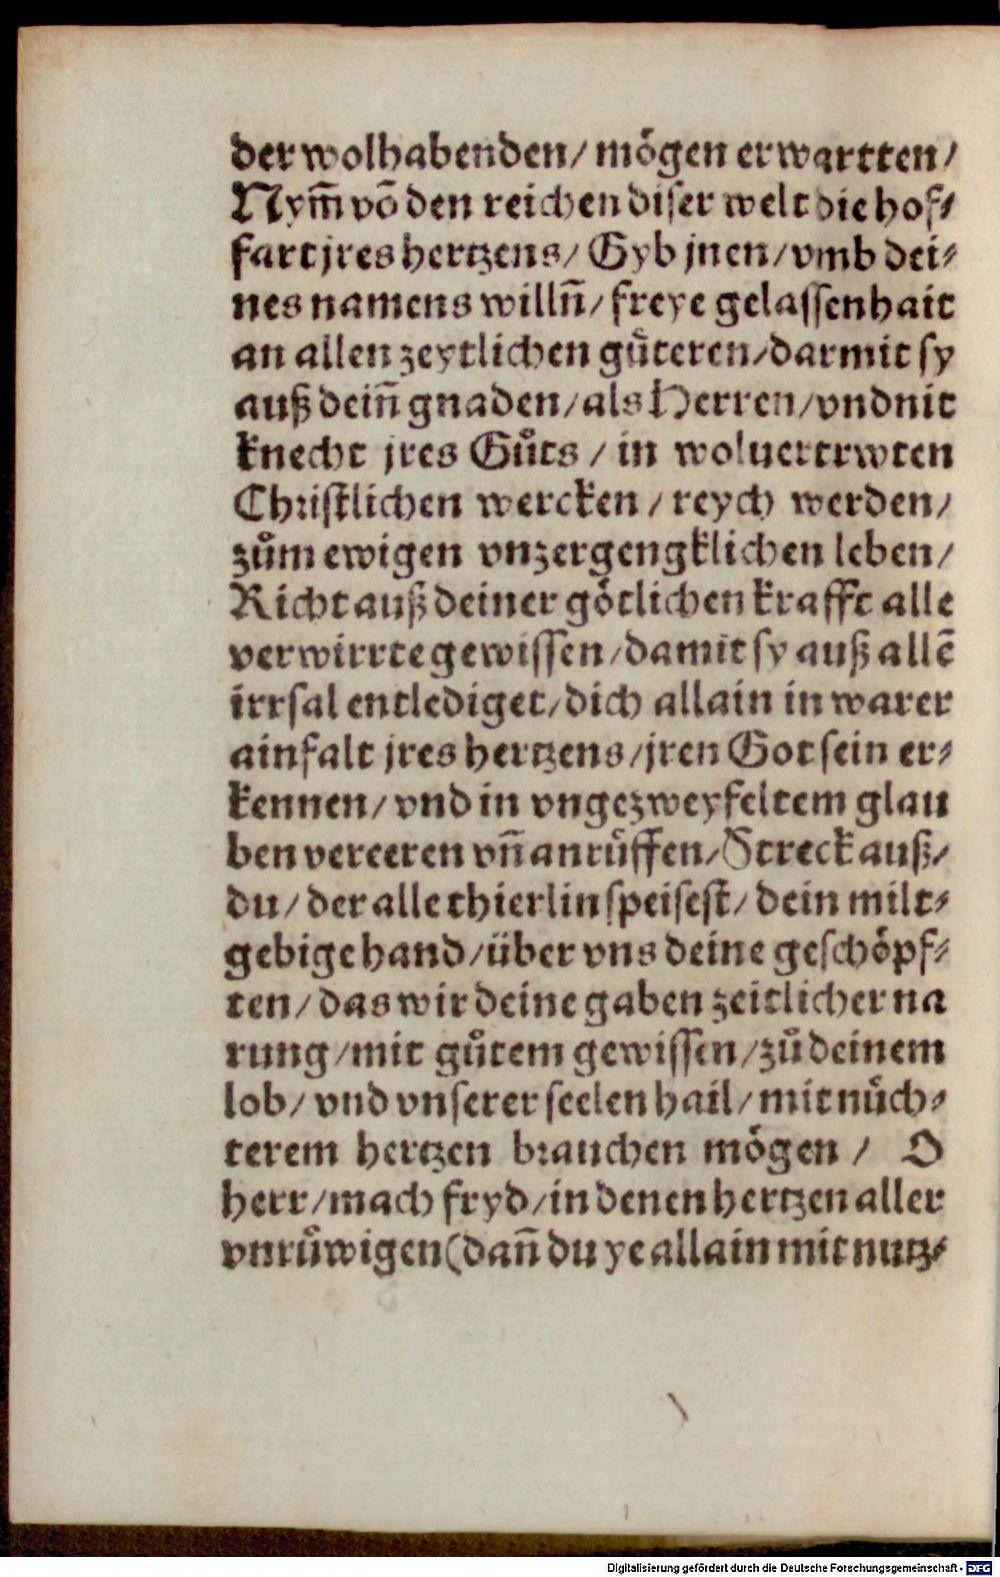 der wolhabenden/ mögen erwartten/
Nym̄ võ den reichen diser welt die hof⸗
fart jres hertzens/ Gyb jnen/ vmb dei⸗
nes namens willñ/ freye gelassenhait
an allen zeytlichen gůteren/ darmit sy
auß deiñ gnaden/ als Herren/ vnd nit
knecht jres Gůts / in woluertrwten
Christlichen wercken / reych werden/
zům ewigen vnzergengklichen leben/
Richt auß deiner götlichen krafft alle
verwirrte gewissen/ damit sy auß allẽ
irrsal entlediget/ dich allain in warer
ainfalt jres hertzens/ jren Got sein er⸗
kennen/ vnd in vngezweyfeltem glau
ben vereeren vñ anrůffen/ Streck auß/
du/ der alle thierlin speisest/ dein milt⸗
gebige hand/ über vns deine geschöpf⸗
ten/ das wir deine gaben zeitlicher na
rung/ mit gůtem gewissen/ zů deinem
lob/ vnd vnserer seelen hail/ mit nůch⸗
terem hertzen brauchen mögen / O
herr/ mach fryd/ in denen hertzen aller
vnrůwigen (dañ du ye allain mit nutz⸗
Digitalisierung gefördert durch die Deutsche Forschungsgemeinschaft - DFG